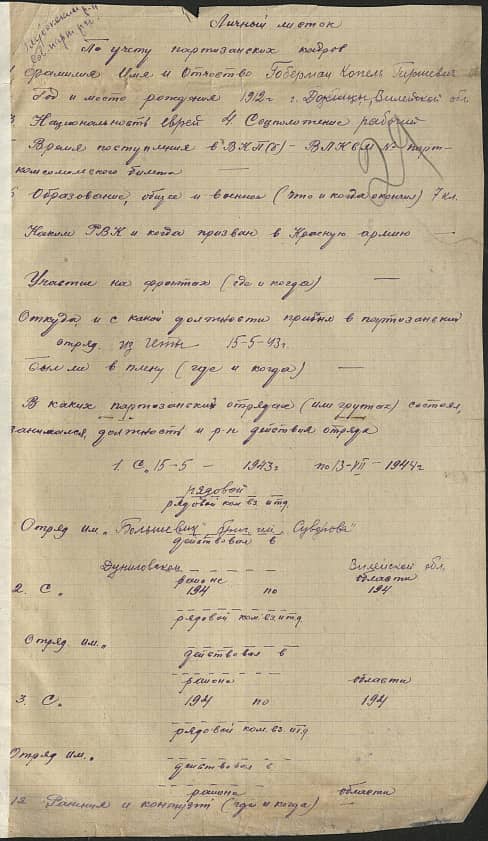 Личный листок
По учету партизанских кадров
Фамилия Имя и Отчество Гоберман Копель Гиршевич
Год и место рождения 1912 г г. Докшицы, Вилейской обл
3 Национальность еврей 4. Соцположение рабочий
Время поступления в ВКП(б) – ВЛКСМ № парт-
комсомольского билета —
29
Образование, общее и военное (что и когда окончил) 7 кл.
Каким РВК и когда призван в Красную армию —
Участие на фронтах (где и когда) —
Откуда и с какой должности прибыл в партизанский
отряд из гетто 15-5-43г.
Был ли в плену (где и когда) —
В каких партизанских отрядах (или группах) состоял,
занимался, должность и р-н действия отряда
1. С. 15-5 – 1943г по 13-VII – 1944г
рядовой
рядовой ком.вз. итд
Отряд им. „Большевик" бриг. им Суворова
действовал в
Дуниловском Вилейской обл.
районе области
2. С. 194 по 194
рядовой ком.вз.итд
Отряд им.„
действовал в
района области
3. С. 194 по 194
рядовой ком.вз.итд
Отряд им.„
действовал в
района области
12 Ранения и контузии (где и когда) —